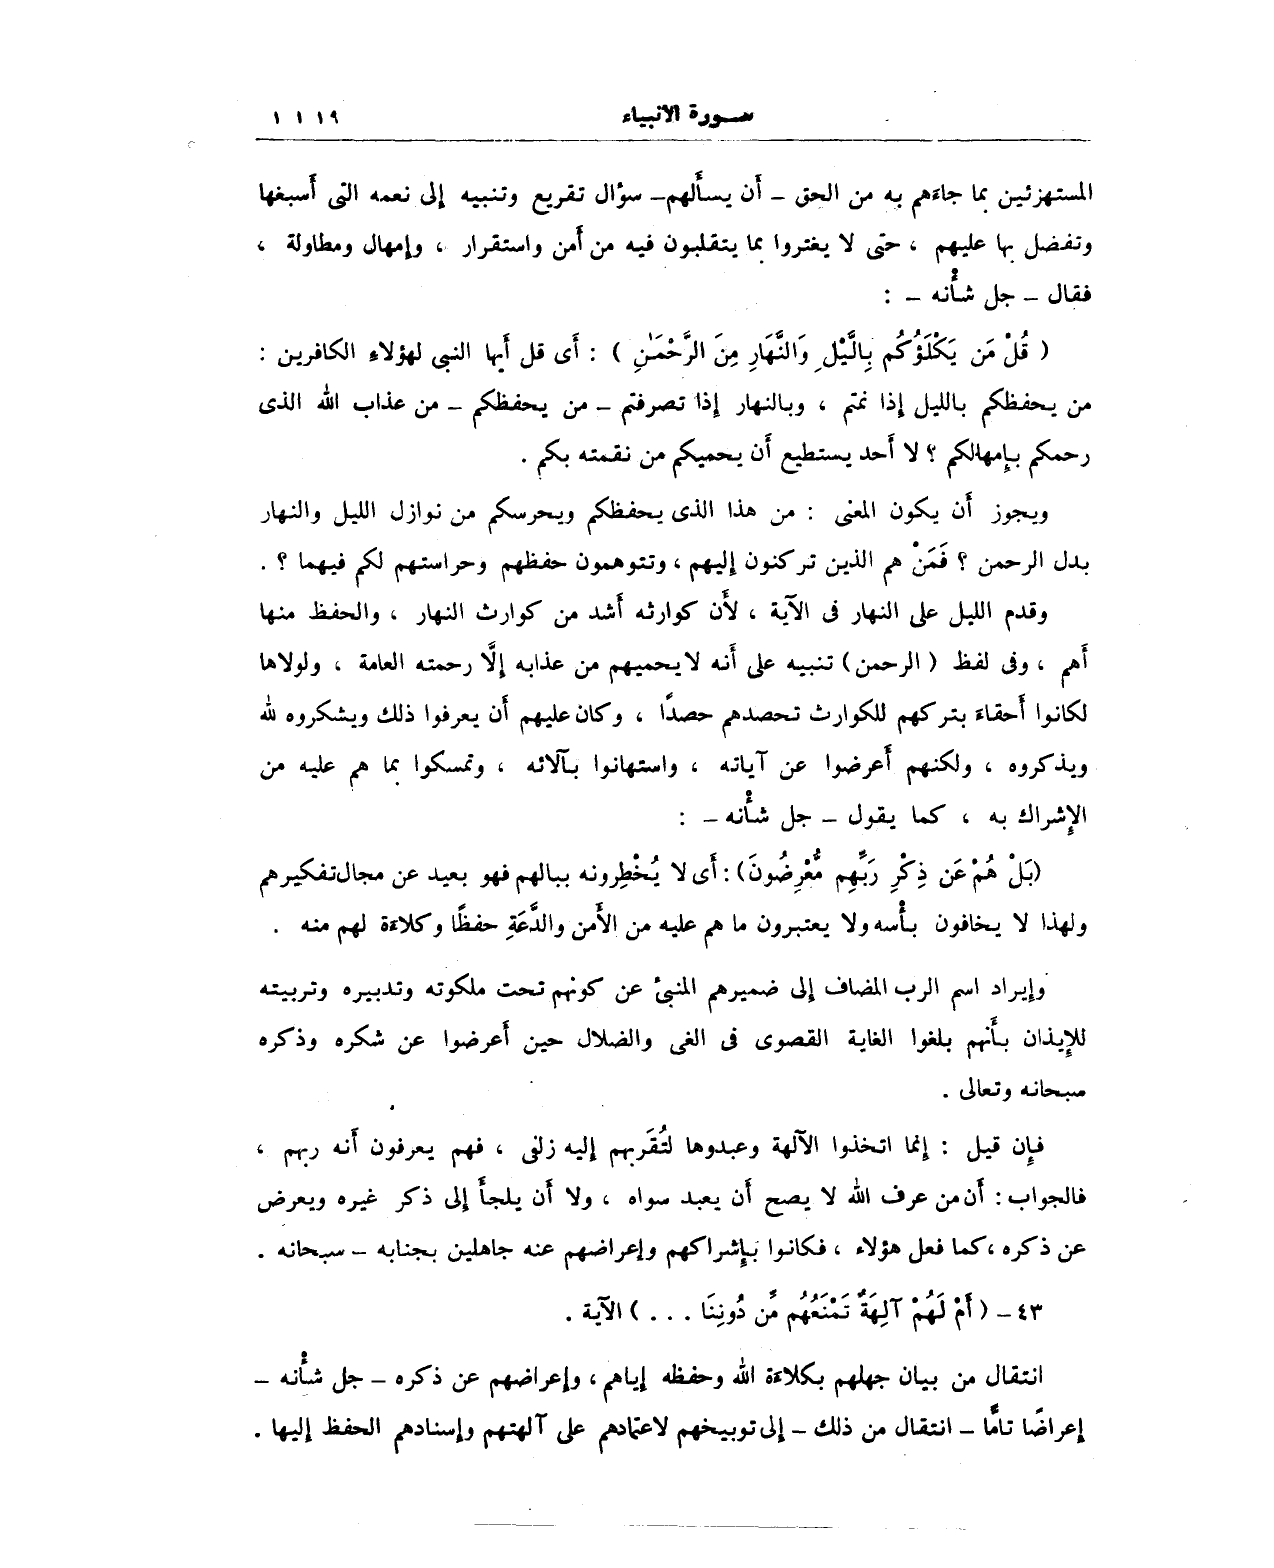 سورة الأنبياء ١١١٩
المستهزئين بما جاءهم به من الحق – أن يسألهم – سؤال تقريع وتنبيه إلى نعمه التى أسبغها
وتفضل بها عليهم ، حتى لا يغتروا بما يتقلبون فيه من أمن واستقرار ، وإمهال ومطاولة ،
فقال – جل شأنه – :
( قُلْ مَن يَكْلَؤُكُم بِالَّيْلِ وَالنَّهَارِ مِنَ الرَّحْمَـٰنِ ) : أى قل أيها النبى لهؤلاء الكافرين :
من يحفظكم بالليل إذا نمتم ، وبالنهار إذا تصرفتم – من يحفظكم – من عذاب الله الذى
رحمكم بإمهالكم ؟ لا أحد يستطيع أن يحميكم من نقمته بكم .
ويجوز أن يكون المعنى : من هذا الذى يحفظكم ويحرسكم من نوازل الليل والنهار
بدل الرحمن ؟ فَمَنْ هم الذين تركنون إليهم ، وتتوهمون حفظهم وحراستهم لكم فيهما ؟ .
وقدم الليل على النهار فى الآية ، لأن كوارثه أشد من كوارث النهار ، والحفظ منها
أهم ، وفى لفظ ( الرحمن ) تنبيه على أنه لا يحميهم من عذابه إلَّا رحمته العامة ، ولولاها
لكانوا أحقاءَ بتركهم للكوارث تحصدهم حصدًا ، وكان عليهم أن يعرفوا ذلك ويشكروه لله
ويذكروه ، ولكنهم أعرضوا عن آياته ، واستهانوا بآلائه ، وتمسكوا بما هم عليه من
الإشراك به ، كما يقول – جل شأنه – :
(بَلْ هُمْ عَن ذِكْرِ رَبِّهِم مُّعْرِضُونَ) : أى لا يُخْطِرونه ببالهم فهو بعيد عن مجال تفكيرهم
ولهذا لا يخافون بأْسه ولا يعتبرون ما هم عليه من الأمن والدَّعَةِ حفظًا وكلاءة لهم منه .
وإيراد اسم الرب المضاف إلى ضميرهم المنبئ عن كونهم تحت ملكوته وتدبيره وتربيته
للإيذان بأنهم بلغوا الغاية القصوى فى الغى والضلال حين أعرضوا عن شكره وذكره
سبحانه وتعالى .
فإن قيل : إنما اتخذوا الآلهة وعبدوها لتُقَربهم إليه زلفى ، فهم يعرفون أنه ربهم ،
فالجواب : أن من عرف الله لا يصح أن يعبد سواه ، ولا أن يلجأ إلى ذكر غيره ويعرض
عن ذكره ، كما فعل هؤلاء ، فكانوا بإشراكهم وإعراضهم عنه جاهلين بجنابه – سبحانه .
٤٣ – ( أَمْ لَهُمْ آلِهَةٌ تَمْنَعُهُم مِّن دُونِنَا . . . ) الآية .
انتقال من بيان جهلهم بكلاءة الله وحفظه إياهم ، وإعراضهم عن ذكره – جل شأنه –
إعراضًا تامًّا – انتقال من ذلك – إلى توبيخهم لاعتمادهم على آلهتهم وإسنادهم الحفظ إليها .